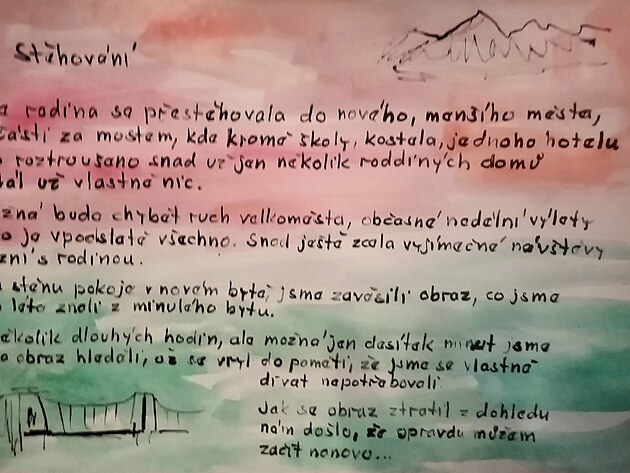 Stěhování
a rodina se přestěhovala do nového, menšího města,
části za mostem, kde kromě školy, kostela, jednoho hotelu
o roztroušeno snad už jen několik roddiných domů
tal už vlastně nic.
zná bude chybět ruch velkoměsta, občasné nedělní výlety
o je vpodstatě všechno. Snad ještě zcela vyjímečné návštěvy
zní s rodinou.
stěnu pokoje v novém bytě, jsme zavěsili obraz, co jsme
léta znali z minulého bytu.
ěkolik dlouhých hodin, ale možná jen desítek minut jsme
a obraz hleděli, až se vryl do paměti, že jsme se vlastně
dívat nepotřebovali.
Jak se obraz ztratil z dohledu
nám došlo, že opravdu můžem
začít nanovo...